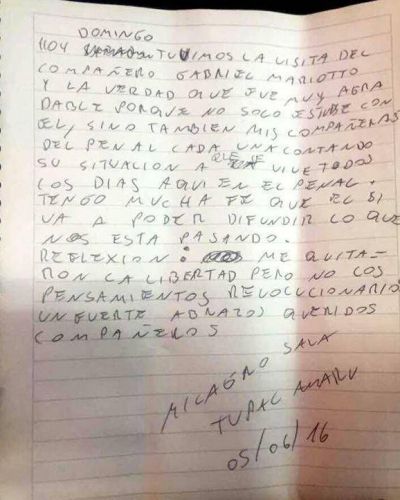 DOMINGO
HOY TUVIMOS LA VISITA DEL
COMPAÑERO GABRIEL MARIOTTO
Y LA VERDAD QUE FUE MUY AGRA
DABLE PORQUE NO SOLO ESTUBE CON
EL, SINO TAMBIEN MIS COMPAÑERAS
DEL PENAL CADA UNA CONTANDO
SU SITUACION A QUE SE VIVE TODOS
LOS DIAS AQUI EN EL PENAL.
TENGO MUCHA FE QUE EL SI
VA A PODER DIFUNDIR LO QUE
NOS ESTA PASANDO.
REFLEXION: ME QUITA-
RON LA LIBERTAD PERO NO LOS
PENSAMIENTOS REVOLUCIONARIO
UN FUERTE ABRAZOS QUERIDOS
COMPAÑEROS
MILAGRO SALA
TUPAC AMARU
05/06/16